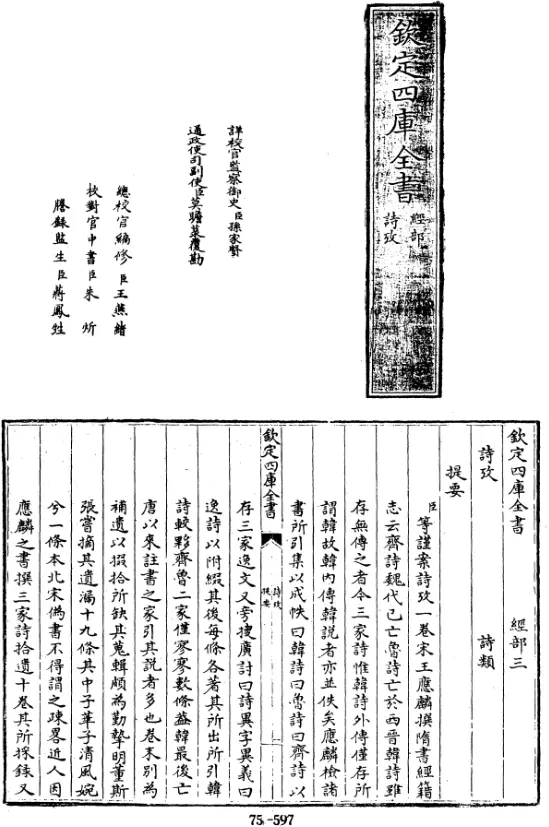 欽定四庫全書
經部
詩攷
詳校官監察御史臣孫家賢
通政使司副使臣莫瞻菉覆勘
總校官編修臣王燕緒
校對官中書臣朱炘
謄錄監生臣蔣鳳甡
欽定四庫全書
經部三
詩攷
詩類
提要
臣等謹案詩攷一卷宋王應麟撰隋書經籍
志云齊詩魏代已亡魯詩亡於西晉韓詩雖
存無傳之者今三家詩惟韓詩外傳僅存所
謂韓故韓內傳韓說者亦並佚矣應麟檢諸
書所引集以成帙曰韓詩曰魯詩曰齊詩以
欽定四庫全書
詩攷
提要
一
存三家逸文又旁搜廣討曰詩異字異義曰
逸詩以附綴其後每條各著其所出所引韓
詩較夥齊魯二家僅寥寥數條蓋韓最後亡
唐以來註書之家引其說者多也卷末别為
補遺以掇拾所缺其蒐輯頗為勤摯明董斯
張嘗摘其遺漏十九條其中子華子清風婉
兮一條本北宋偽書不得謂之疎畧近人因
應麟之書撰三家詩拾遺十卷其所採錄又
75-597